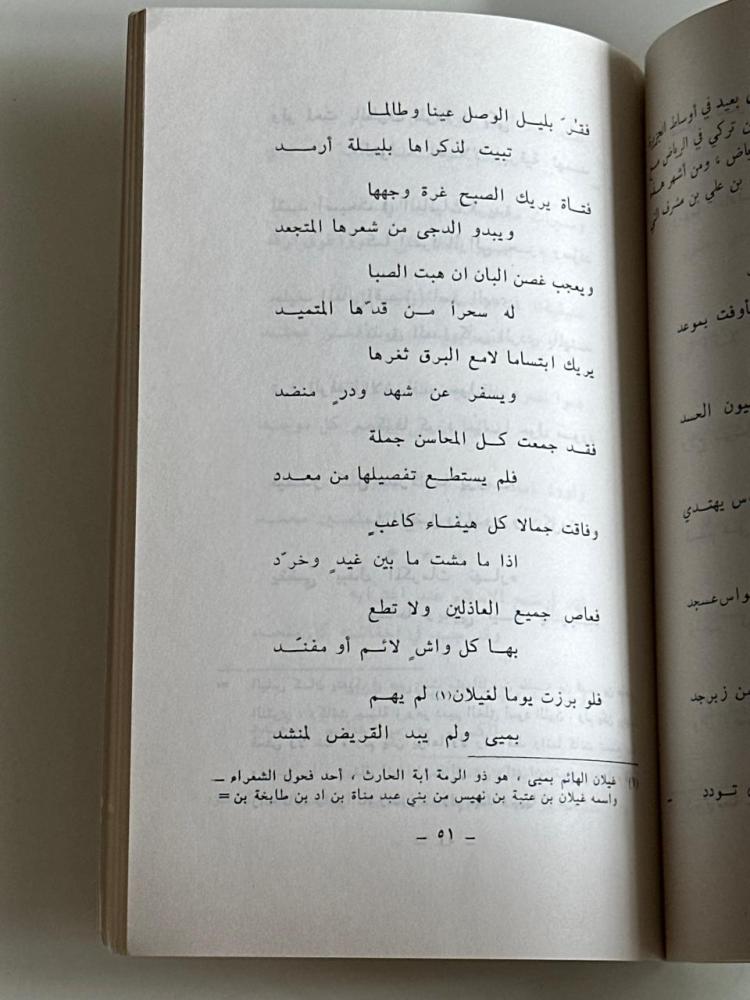 فقرّ بليل الوصل عينا وطالما
تبيت لذكراها بليلة أرمــد
فتاة يريك الصبح غرة وجهها
ويبدو الدجى من شعرها المتجعد
ويعجب غصن البان ان هبت الصبا
له سحراً مــن قدّها المتميــد
يريك ابتساما لامع البرق ثغرها
ويسفر عن شهد ودرٍ منضد
فقــد جمعت كــل المحاسن جملة
فلم يستطــع تفصيلها من معدد
وفاقت جمالا كل هيفــاء كاعبٍ
اذا ما مشت ما بين غيدٍ وخرّد
فعاص جميع العاذلين ولا تطع
بهــا كل واشٍ لائــم أو مفنــد
فلو برزت يوما لغيلان(١) لم يهــم
بميى ولم يبد القريض لمنشد
(١) غيلان الهائم بميى ، هو ذو الرمة أبة الحارث ، أحد فحول الشعراء ــ
واسمه غيلان بن عتبة بن نهيس من بني عبد مناة بن اد بن طابخة بن =
ــ ٥١ ــ
بعيد في أوساط
تركي في الرياض
ومن أشهر
بن علي بن مشرف
بموعد
الحسد
يهتدي
عسجد
من زبرجد
تــودد